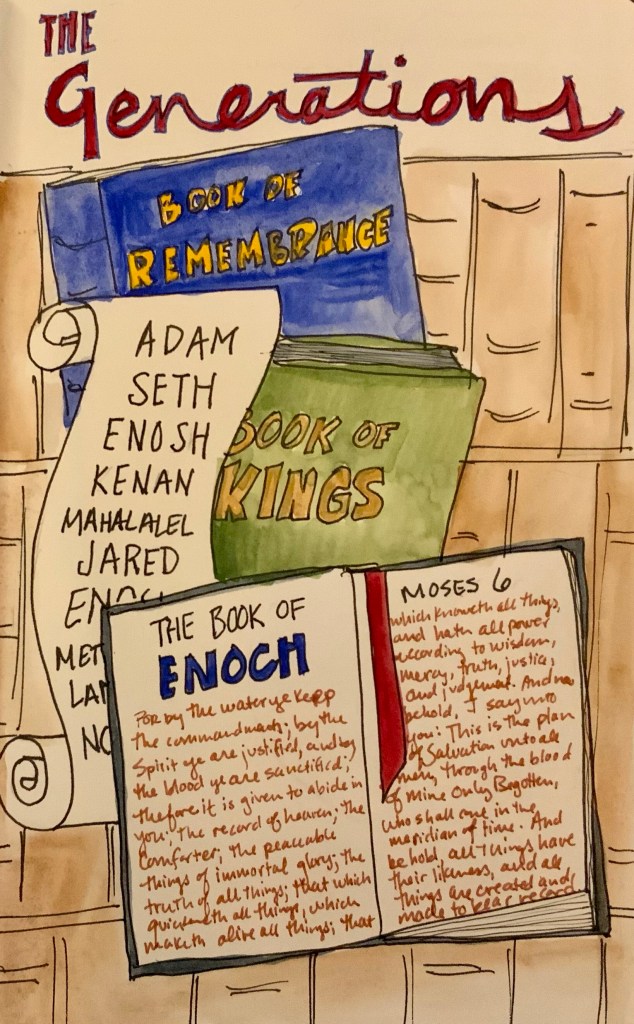 THE
Generations
BOOK OF
REMEMBRANCE
ADAM
SETH
ENOSH
KENAN
MAHALALEL
JARED
ENOCH
MET
LAM
NO
BOOK OF
KINGS
THE BOOK OF
ENOCH
For by the water ye keep
the commandment; by the
Spirit ye are justified, and by
the blood ye are sanctified;
therefore it is given to abide in
you; The record of heaven; the
Comforter; the peaceable
things of immortal glory; the
truth of all things; that which
quickeneth all things, which
maketh alive all things; that
MOSES 6
which knoweth all things,
and hath all power
according to wisdom,
mercy, truth, justice,
and judgement. And now
behold, I say unto
you: This is the plan
of Salvation unto all
men, through the blood
of mine Only Begotten,
who shall come in the
meridian of time. And
behold, all things have
their likeness, and all
things are created and
made to bear record